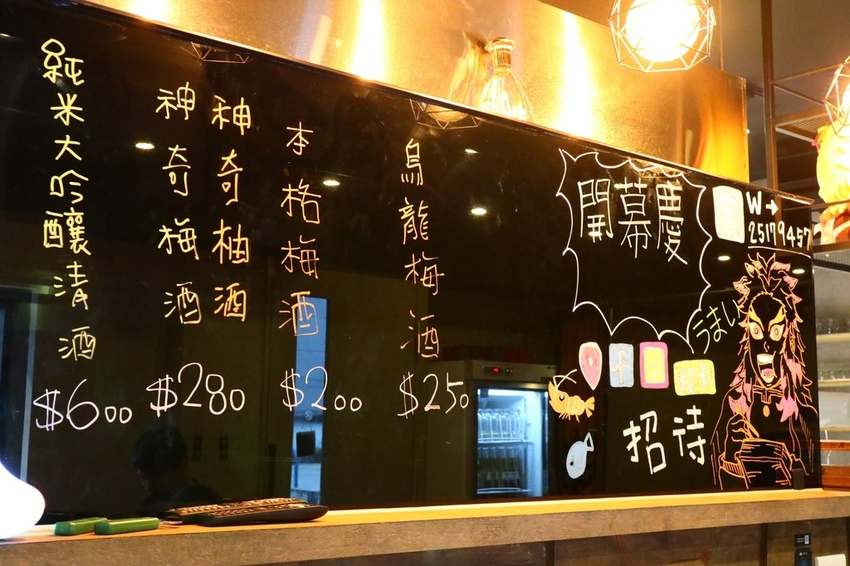 純米大吟釀清酒
$600
神奇梅酒
神奇柚酒
$280
本格梅酒
$200
烏龍梅酒
$250
開幕慶
W→
25179457
うまい
招待